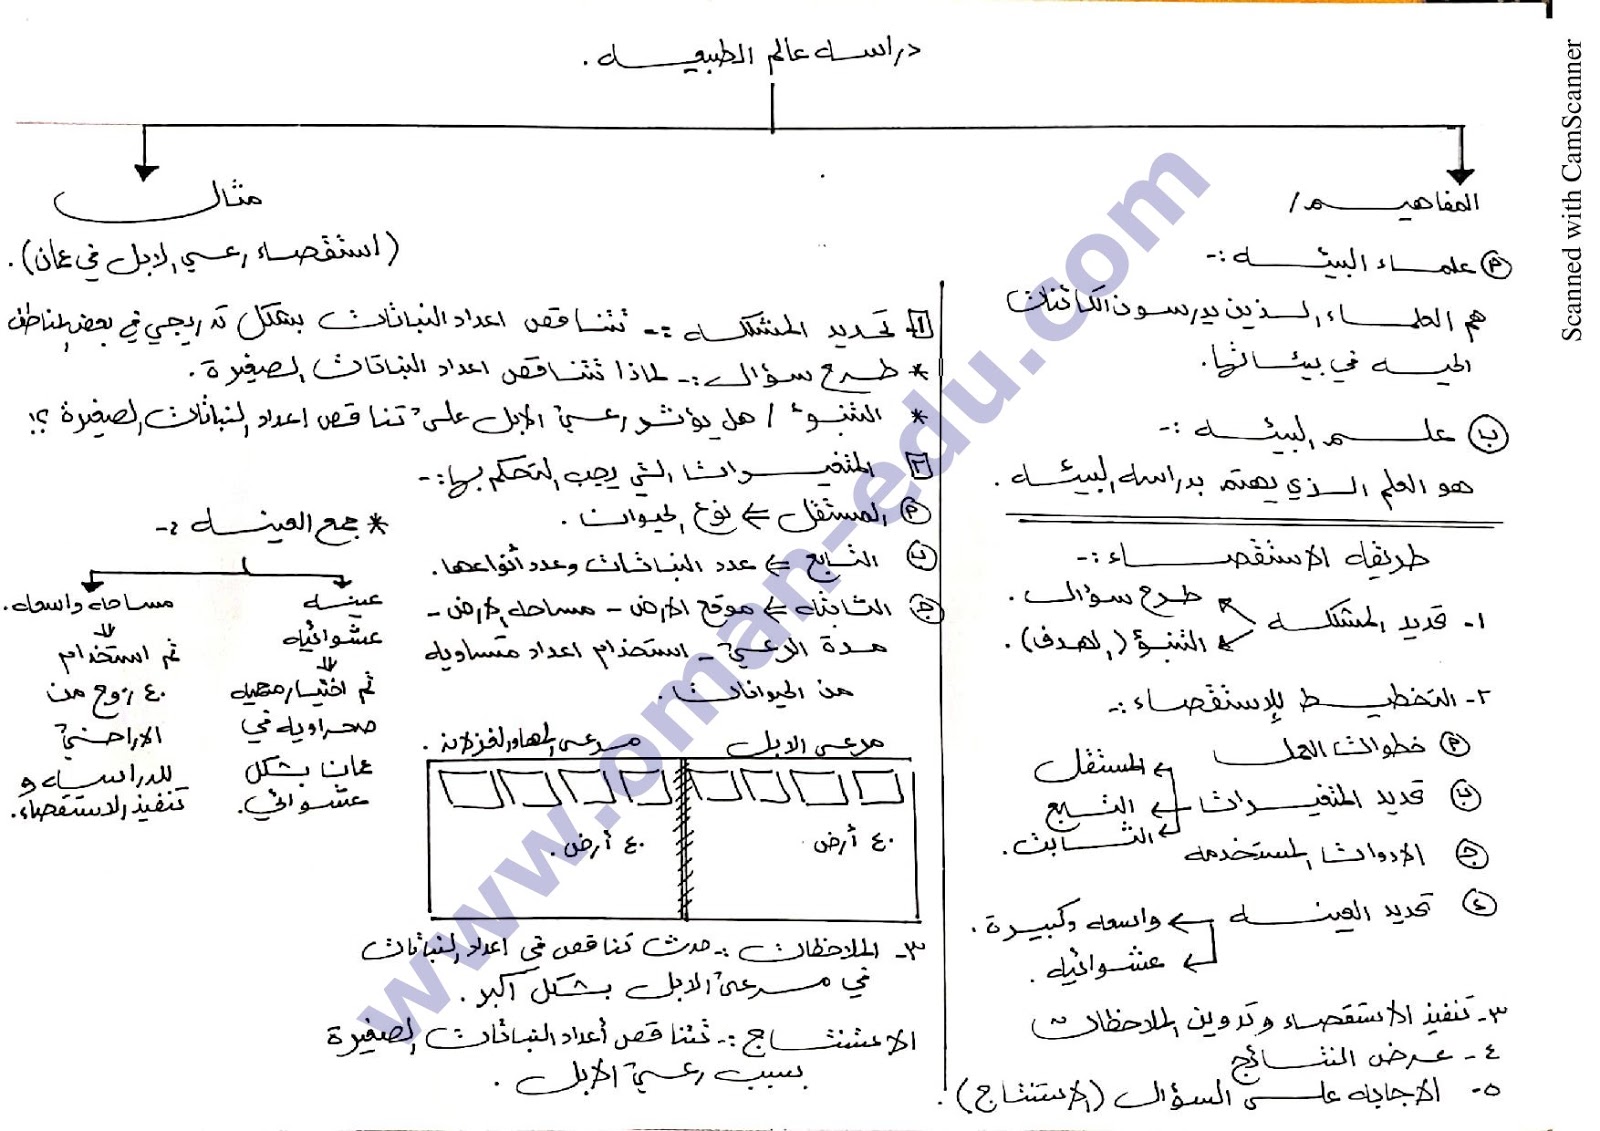 دراسه عالم الطبيعيه .
المفاهيم /
أ علماء البيئه :-
هم العلماء الذين يدرسون الكائنات
الحيه في بيئاتها.
ب علم البيئه :-
هو العلم الذي يهتم بدراسه البيئه .
طريقه الاستقصاء :-
١- تحديد المشكله
طرح سؤال .
التنبؤ (الهدف) .
٢- التخطيط للإستقصاء :-
أ خطوات العمل
ب تحديد المتغيرات
المستقل
التابع
الثابت .
ج الادوات المستخدمه
د تحديد العينه ← واسعه وكبيرة .
عشوائيه .
٣- تنفيذ الاستقصاء وتدوين الملاحظات
٤- عرض النتائج
٥- الاجابه على السؤال (الاستنتاج) .
مثال
(استقصاء رعي الابل في عمان) .
١- تحديد المشكله :- تتناقص اعداد النباتات بشكل تدريجي في بعض المناطق
* طرح سؤال :- لماذا تتناقص اعداد النباتات الصغيرة .
* التنبوء / هل يؤثر رعي الابل على تناقص اعداد النباتات الصغيرة ؟!
٢ المتغيرات التي يجب التحكم بها :-
أ المستقل ⇐ نوع الحيوان .
ب التابع ⇐ عدد النباتات وعدد أنواعها .
ج الثابته ⇐ موقع الارض - مساحه الارض -
مدة الرعي - استخدام اعداد متساويه
من الحيوانات .
مرعى الابل
مرعى المها والغزلان .
٤٠ أرض
٤٠ أرض .
* جمع العينه :-
عينه
عشوائيه
⇓
تم اختيار محميه
صحراويه في
عمان بشكل
عشوائي.
مساحه واسعه .
⇓
تم استخدام
٤٠ زوج من
الاراضي
للدراسه و
تنفيذ الاستقصاء .
٣- الملاحظات :- حدث تناقص في اعداد النباتات
في مرعى الابل بشكل أكبر .
الاستنتاج :- تتناقص أعداد النباتات الصغيرة
بسبب رعي الابل .
www.oman-edu.com
Scanned with CamScanner